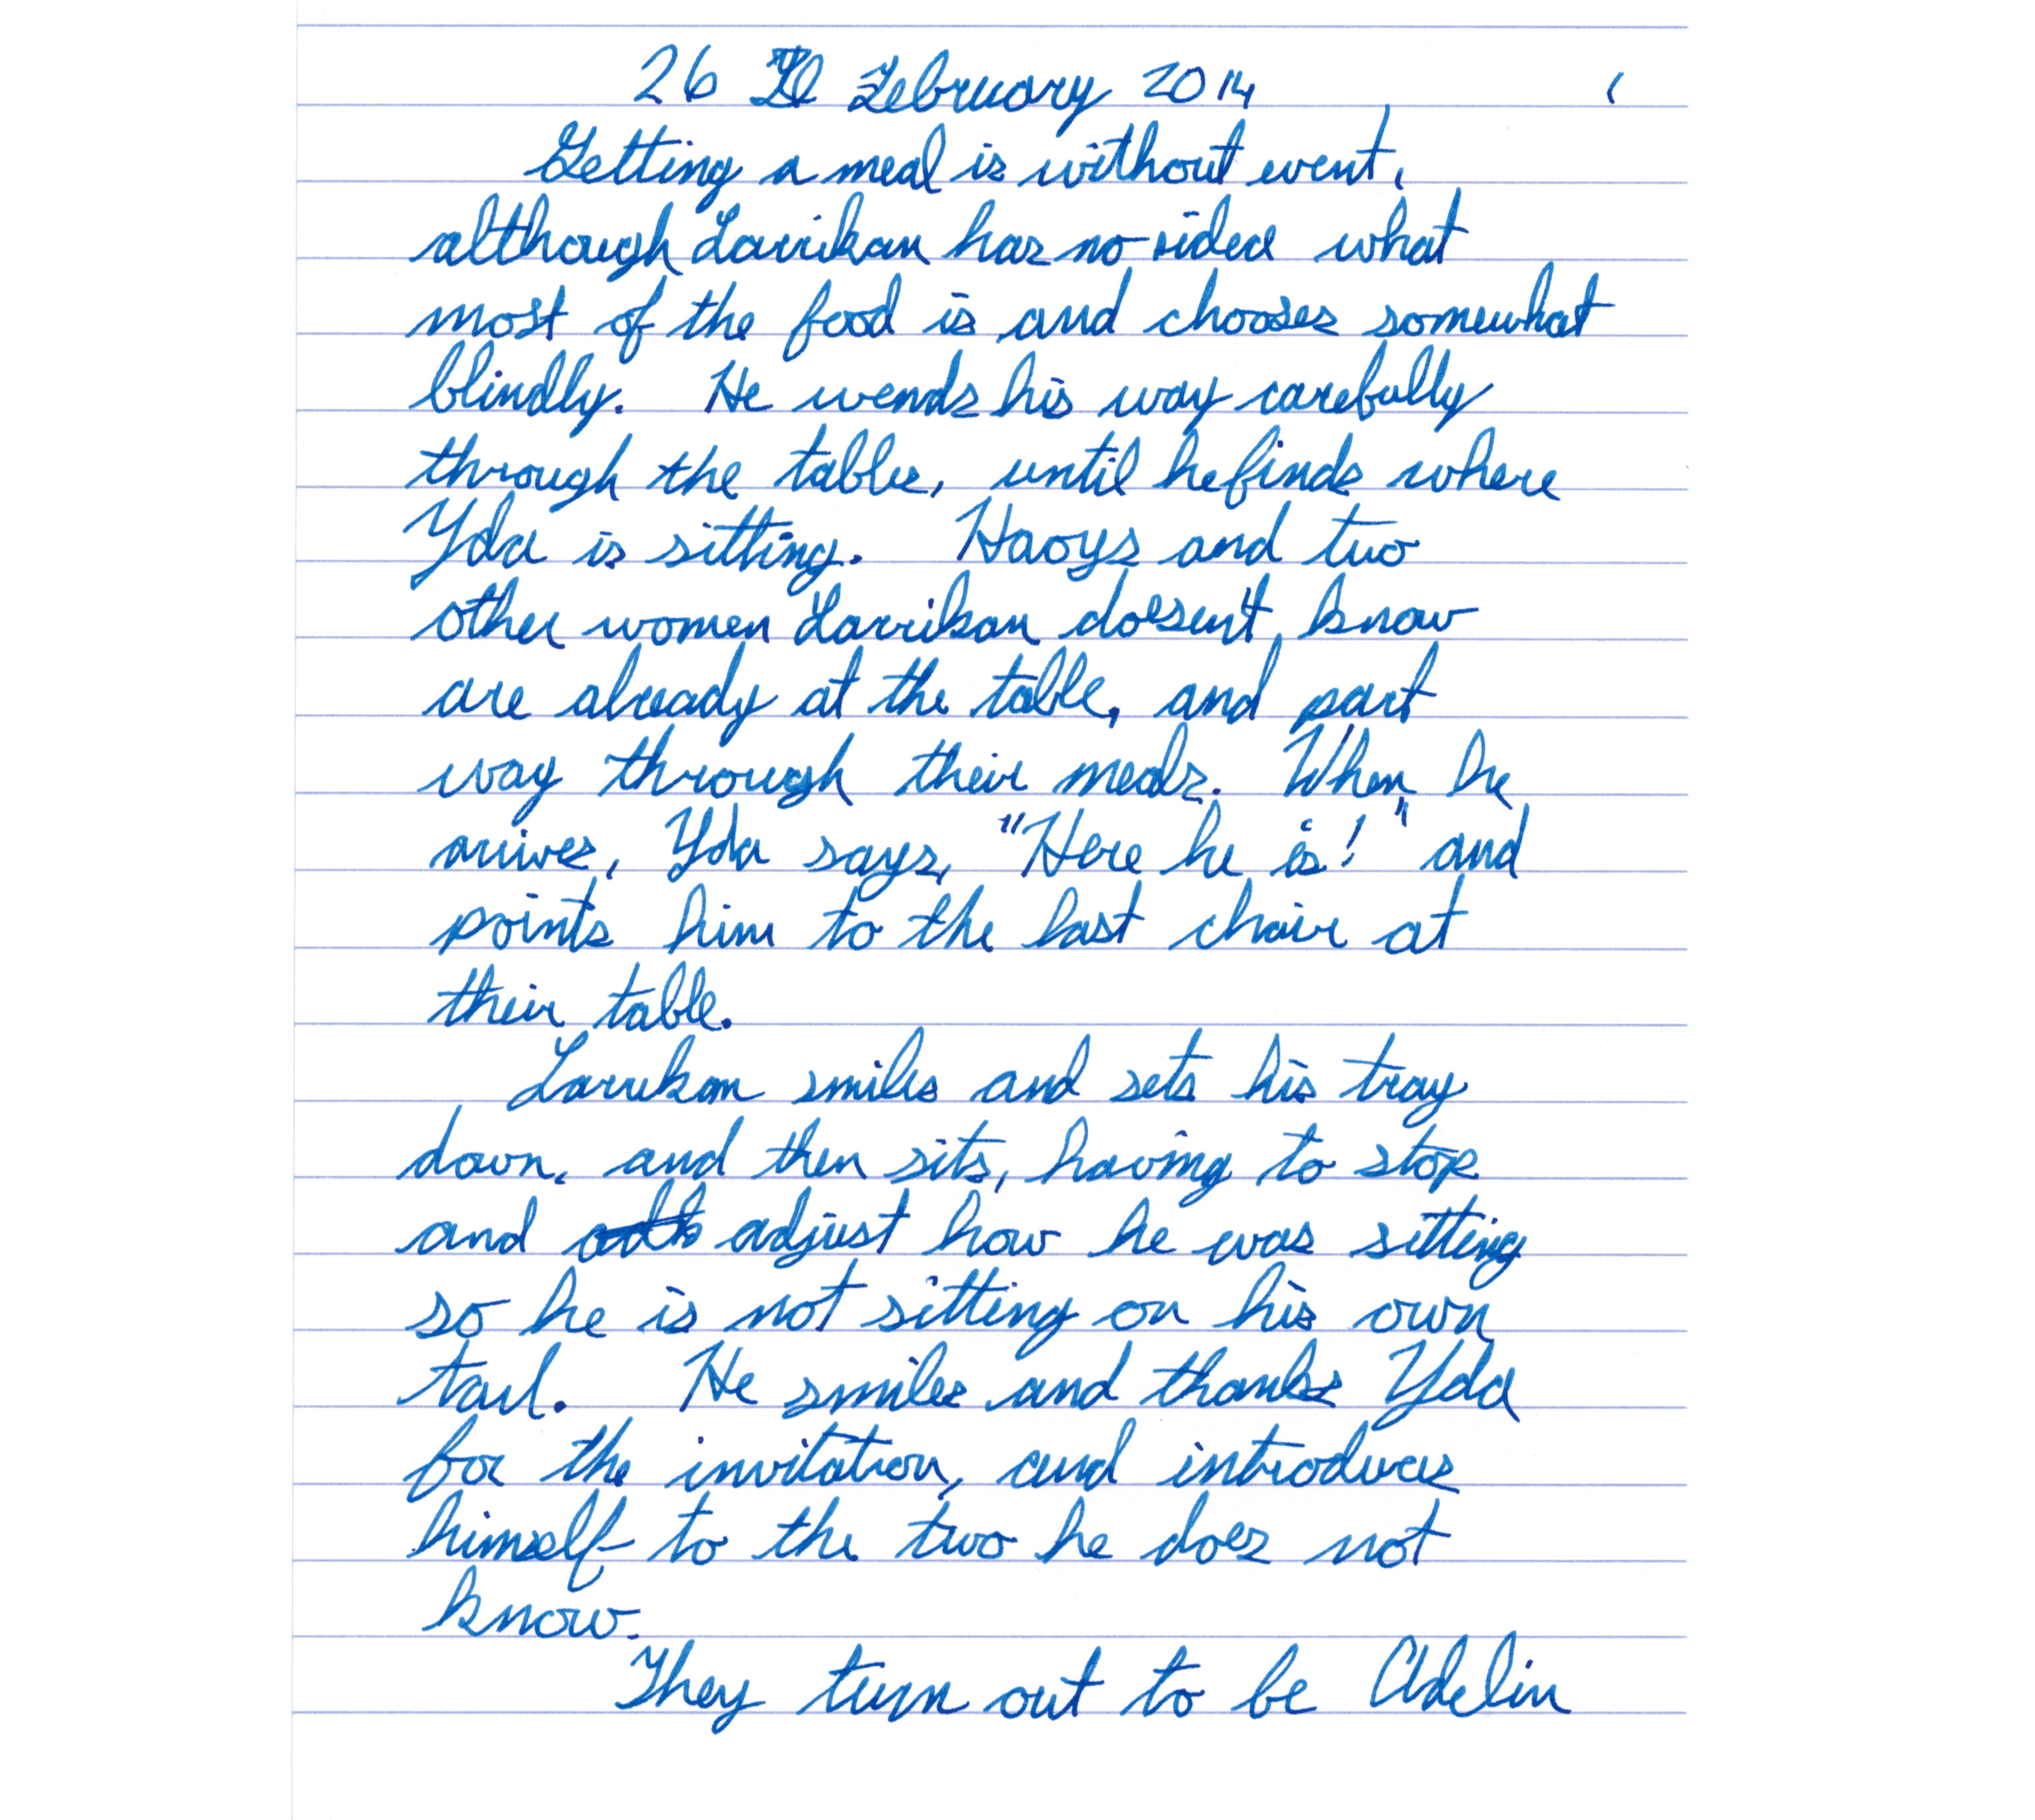 26 February 2014
Getting a meal is without event,
although Larrikan has no idea what
most of the food is and chooses somewhat
blindly. He wends his way carefully
through the tables, until he finds where
Yda is sitting. Haoys and two
other women Larrikan doesn't know
are already at the table, and part
way through their meals. When he
arrives, Yda says, "Here he is!" and
points him to the last chair at
their table.
Larrikan smiles and sets his tray
down, and then sits, having to stop
and adjust how he was sitting
so he is not sitting on his own
tail. He smiles and thanks Yda
for the invitation, and introduces
himself to the two he does not
know.
They turn out to be Adelin